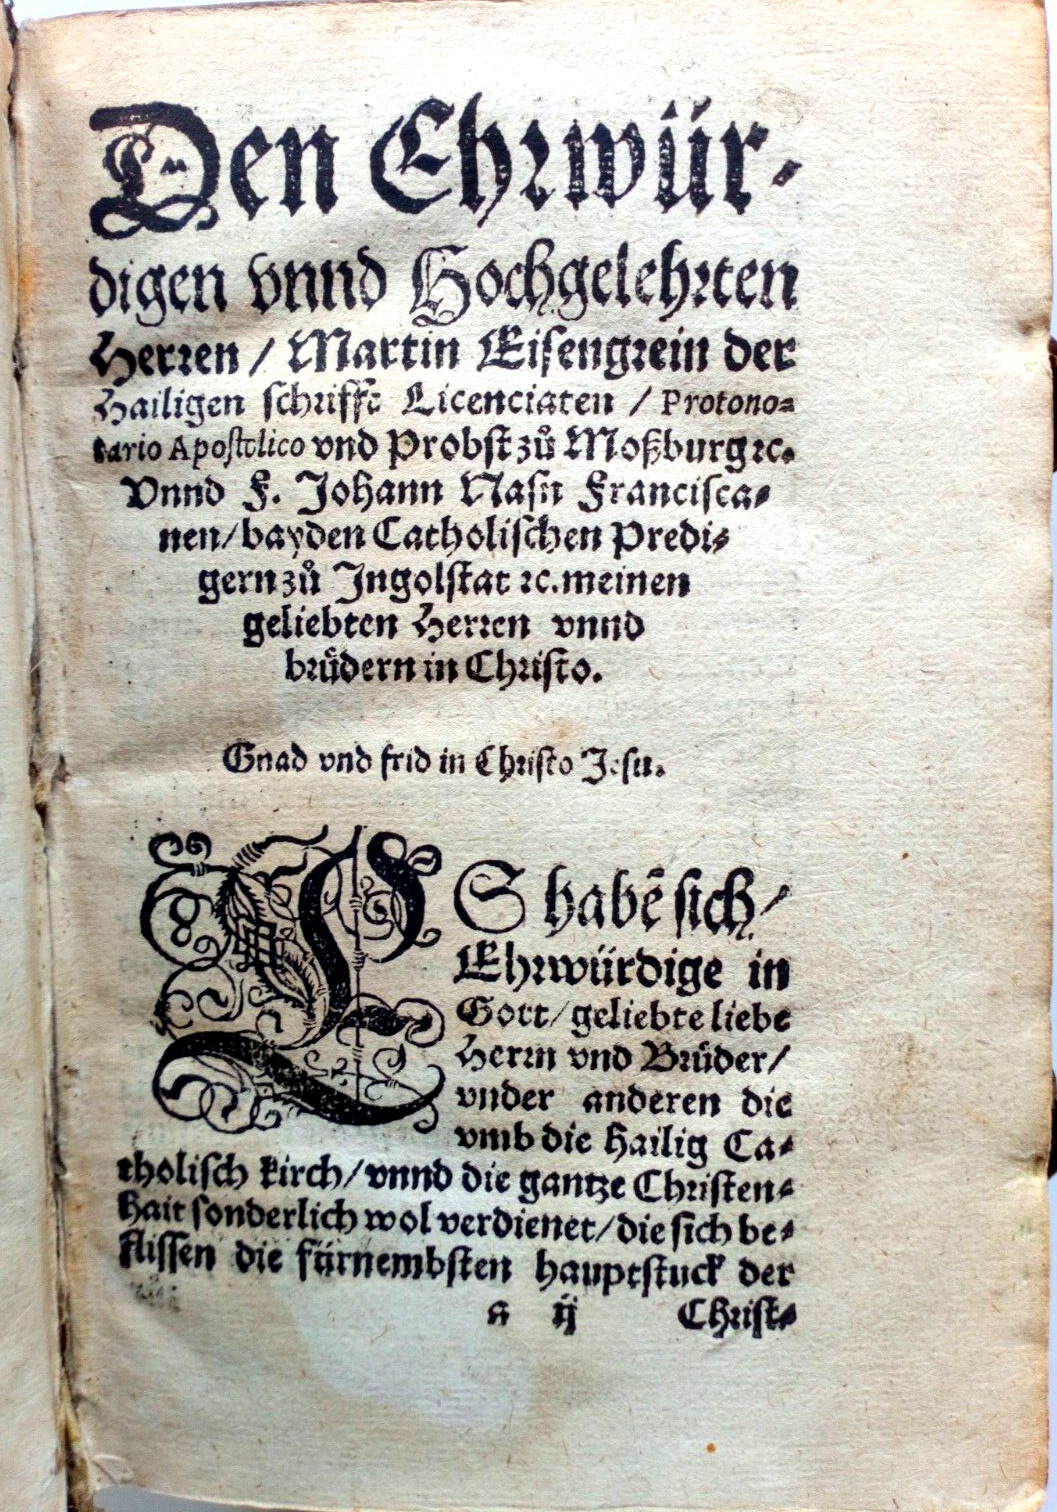 Den Ehrwür-
digen vnnd Hochgelehrten
Herren / Martin Eisengrein der
Hailigen schrifft Licenciaten / Protono=
tario Apostolico vnd Probst zů Moßburg ꝛc.
Vnnd F. Johann Nasn Francisca=
nen / bayden Catholischen Predi=
gern zů Ingolstat ꝛc. meinen
geliebten Herren vnnd
brůdern in Christo.
Gnad vnd frid in Christo Jesu.
ES habẽ sich /
Ehrwürdige in
Gott / geliebte liebe
Herrn vnd Brůder /
vnder anderen die
vmb die Hailig Ca=
tholisch kirch / vnnd die gantze Christen=
hait sonderlich wol verdienet / die sich be=
flissen die fürnembsten hauptstuck der
a ij Christ=